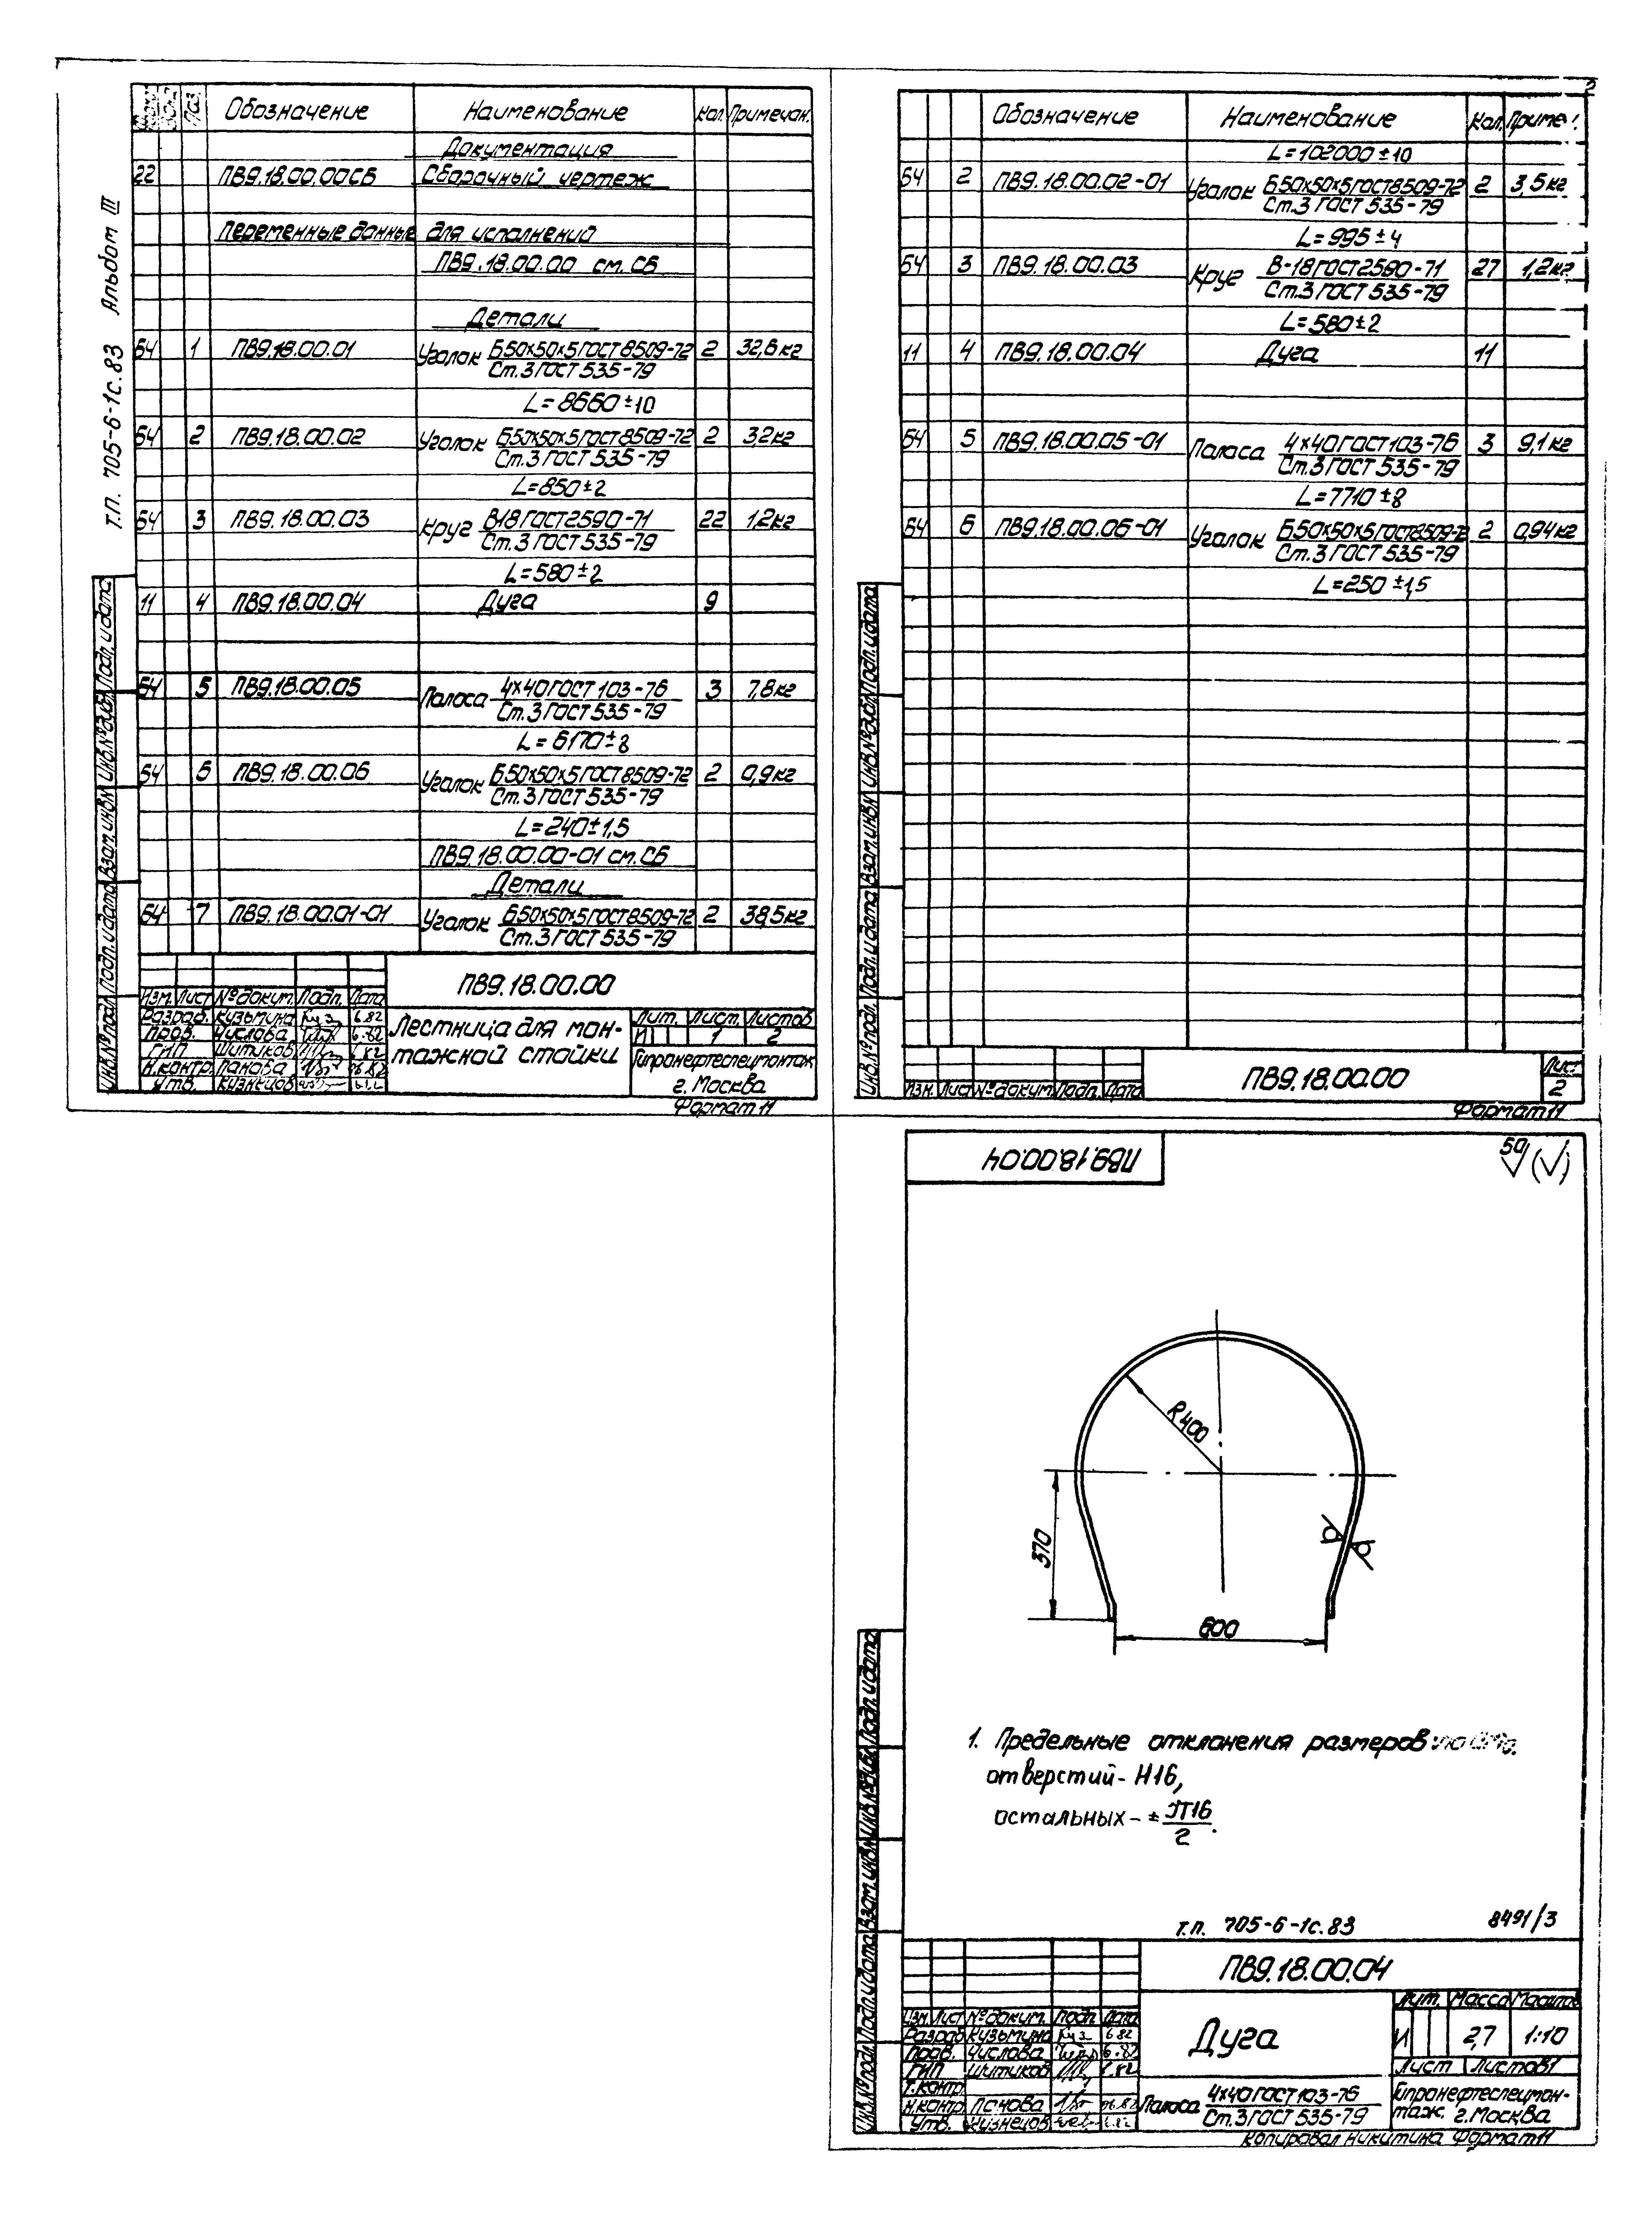 т.п. 705-6-1с.83 Альбом III
Поз. Обозначение Наименование Кол. Примечан.
Документация
22 ПВ9.18.00.00СБ Сборочный чертеж
Переменные данные для исполнений
ПВ9.18.00.00 см. СБ
Детали
Б4 1 ПВ9.18.00.01 Уголок Б50х50х5 ГОСТ 8509-72 2 32,6кг
Ст.3 ГОСТ 535-79
L=8660±10
Б4 2 ПВ9.18.00.02 Уголок Б50х50х5 ГОСТ 8509-72 2 3,2кг
Ст.3 ГОСТ 535-79
L=850±2
Б4 3 ПВ9.18.00.03 Круг В18 ГОСТ 2590-71 22 1,2кг
Ст.3 ГОСТ 535-79
L=580±2
11 4 ПВ9.18.00.04 Дуга 9
Б4 5 ПВ9.18.00.05 Полоса 4х40 ГОСТ 103-76 3 7,8кг
Ст.3 ГОСТ 535-79
L=6170±8
Б4 6 ПВ9.18.00.06 Уголок Б50х50х5 ГОСТ 8509-72 2 0,9кг
Ст.3 ГОСТ 535-79
L=240±1,5
ПВ9.18.00.00-01 см. СБ
Детали
Б4 7 ПВ9.18.00.01-01 Уголок Б50х50х5 ГОСТ 8509-72 2 38,5кг
Ст.3 ГОСТ 535-79
Инв.№подл. Подп. и дата Взам.инв.№ Инв.№дубл. Подп. и дата
ПВ9.18.00.00
Изм. Лист №докум. Подп. Дата
Разраб. Кузьмина 6.82
Пров. Числова 6.82
ГИП Шитиков 6.82
Н.контр. Панова 06.82
Утв. Кузнецов
Лестница для мон-
тажной стойки
Лит. Лист. Листов
И 1 2
Гипронефтеспецмонтаж
г. Москва
Формат 11
2
Обозначение Наименование Кол. Приме
L=102000±10
Б4 2 ПВ9.18.00.02-01 Уголок Б50х50х5 ГОСТ 8509-72 2 3,5кг
Ст.3 ГОСТ 535-79
L=995±4
Б4 3 ПВ9.18.00.03 Круг В-18 ГОСТ 2590-71 27 1,2кг
Ст.3 ГОСТ 535-79
L=580±2
11 4 ПВ9.18.00.04 Дуга 11
Б4 5 ПВ9.18.00.05-01 Полоса 4х40 ГОСТ 103-76 3 9,1кг
Ст.3 ГОСТ 535-79
L=7710±8
Б4 6 ПВ9.18.00.06-01 Уголок Б50х50х5 ГОСТ 8509-72 2 0,94кг
Ст.3 ГОСТ 535-79
L=250±1,5
Инв.№подл. Подп. и дата Взам.инв.№ Инв.№дубл. Подп. и дата
Изм. Лист №докум. Подп. Дата
ПВ9.18.00.00
Лист
2
Формат 11
ПВ9.18.00.04
50
R400
370
600
1. Предельные отклонения размеров
отверстий - H16,
остальных - ± IT16
2.
т.п. 705-6-1с.83 8491/3
Инв.№подл. Подп. и дата Взам.инв.№ Инв.№дубл. Подп. и дата
ПВ9.18.00.04
Изм. Лист №докум. Подп. Дата
Разраб. Кузьмина 6.82
Пров. Числова 6.82
ГИП Шитиков 6.82
Т.контр.
Н.контр. Панова 06.82
Утв. Кузнецов 6.82
Дуга
Лит. Масса Масштаб
И 2,7 1:10
Лист Листов 1
Полоса 4х40 ГОСТ 103-76
Ст.3 ГОСТ 535-79
Гипронефтеспецмон-
таж г. Москва
Копировал Никитина Формат 11